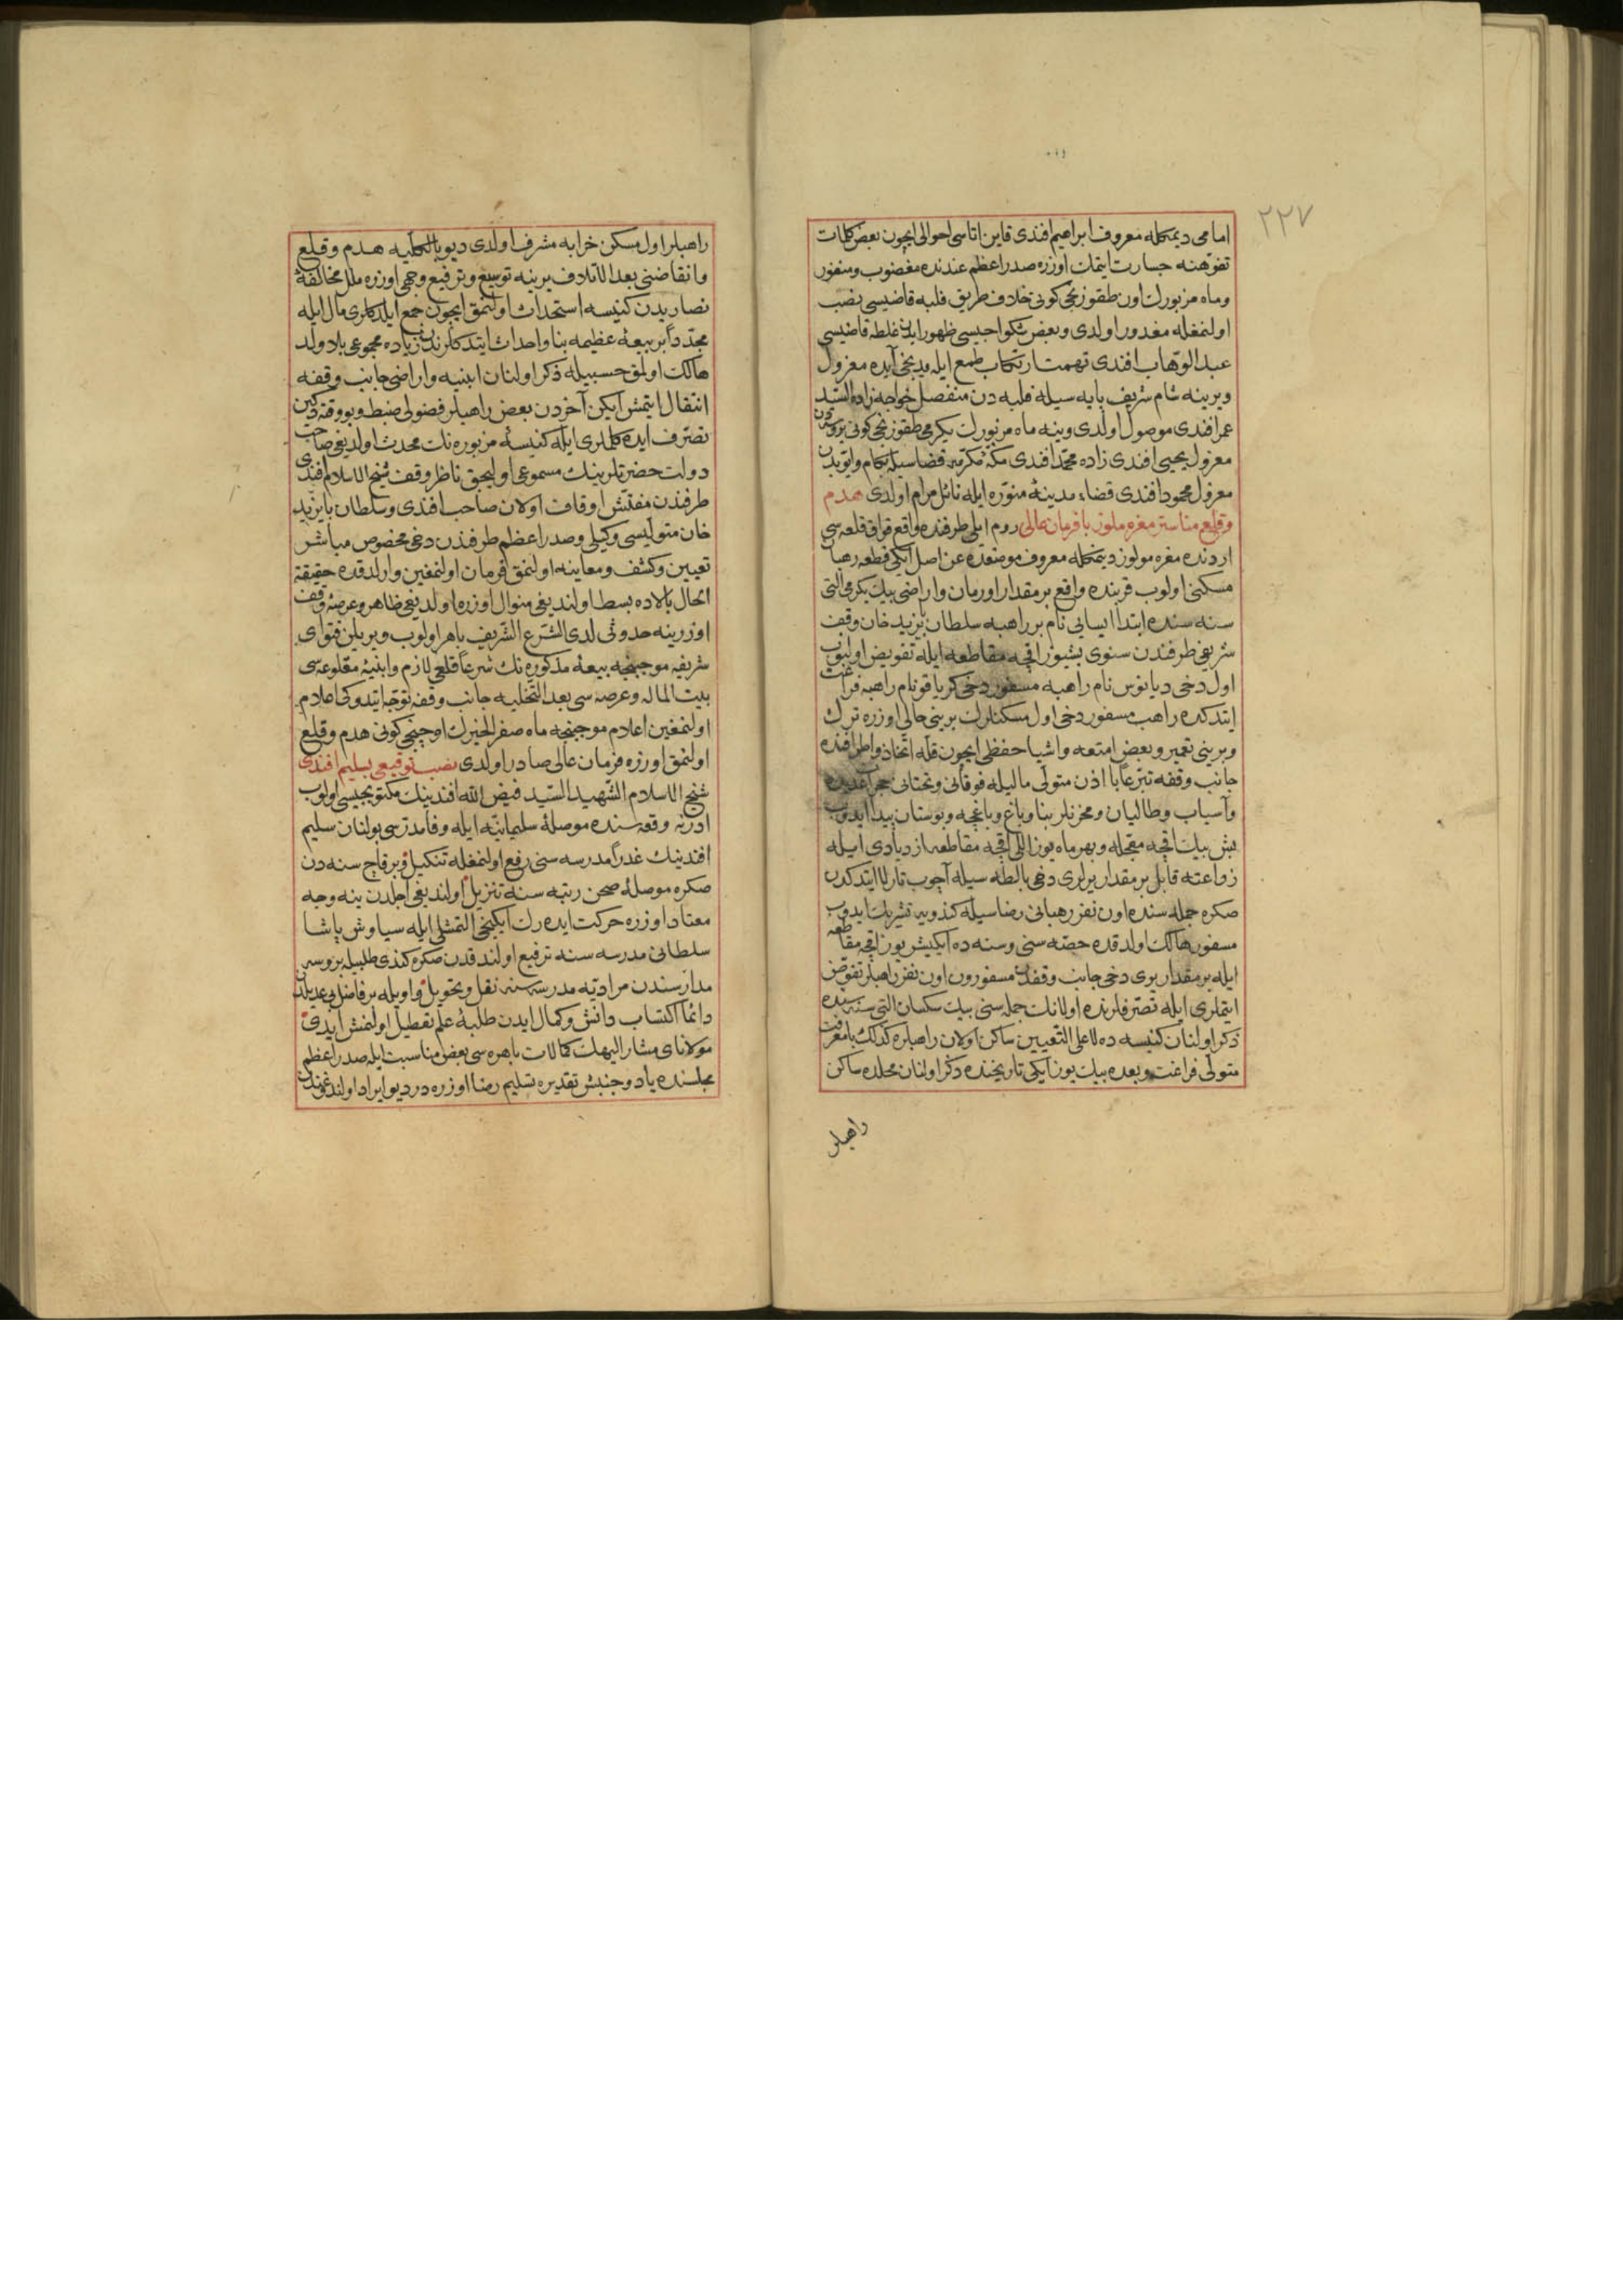 ٢٢٧
امامی دیمکله معروف ابراهیم افندی قاین اتاسی احوالی ایچون بعض کلمات
تفوّهنه جسارت ایتمك اوزره صدر اعظم عندنده مغضوب ومنفور
وماه مزبورك اون طقوزنجی کونی خلاف طریق فلبه قاضیسی نصب
اولنمغله مغدور اولدی وبعض شکواجیسی ظهور ایدن غلطه قاضیسی
عبد الوهّاب افندی تهمت ارتکاب طمع ایله یدنجی آیده معزول
ویرینه شام شریف پایه سیله فلبه دن منفصل خواجه زاده السّید
عمر افندی موصول اولدی وینه ماه مزبورك یکرمی طقوزنجی کونی
معزول یحیی افندی زاده محمّد افندی مکّۀ مکرّمه قضاسیله بکام وایّوبدن
معزول محمود افندی قضاء مدینۀ منوّره ایله نائل مرام اولدی هدم
وقلع مناستر مغره ملوز بافرمان عالی روم ایلی طرفنده واقع قراق قلعه سی
اردنده مغره مولوز دیمکله معروف موضعده عن اصل ایکی قطعه رهبان
مسکنی اولوب قربنده واقع بر مقدار اورمان واراضی بیك یکرمی التی
سنه سنده ابتدا ایسایی نام بر راهبه سلطان بایزید خان وقف
شریفی طرفندن سنوی بشیوز اقچه مقاطعه ایله تفویض اولنوب
اول دخی دیانوس نام راهبه مسفور دخی کریاقو نام راهبه فراغت
ایتدکده راهب مسفور دخی اول مسکنلرك برینی حالی اوزره ترك
وبرینی تعمیر وبعض امتعه واشیا حفظی ایچون قله اتّخاذ واطرافنده
جانب وقفه تبرّعاً با اذن متولّی مالیله فوقانی وتحتانی
وآسیاب وطالیان ومخزنلر بنا وباغ وباغچه وبوستان پیدا ایدوب
بش بیك اقچه معجّله وبهر ماه یوز اللی اقچه مقاطعه ازدیادی ایله
زراعته قابل بر مقدار یرلری دخی بالطه سیله آچوب تارلا ایتدکدن
صکره جمله سنده اون نفر رهبانی رضاسیله کندویه تشریك ایدوب
مسفور هالك اولدقده حصّه سنی وسنه ده ایکیشر یوز اقچه مقاطعه
ایله بر مقدار یری دخی جانب وقفدن مسفورون اون نفر راهبلره تفویض
ایتملری ایله تصرّفلرنده اولانك جمله سنی بیك سکسان التی سنه سنده
ذکر اولنان کنیسه ده لا علی التّعیین ساکن اولان راهبلره کذلك بامعرفت
متولّی فراغت وبعده بیك یوز ایکی تاریخنده ذکر اولنان محلده ساکن
راهبلر
راهبلر اول مسکن خرابه مشرف اولدی دیو بالکلّیه هدم وقلع
وانقاضنی بعد الاتلاف یرینه توسیع وترفیع وجهی اوزره ملل مخالفۀ
نصاریدن کنیسه استحداث اولنمق ایچون جمع ایلدکلری مال ایله
مجدّداً بر بیعۀ عظیمه بنا واحداث ایتدکلرندن زیاده مجموعی بلا ولد
هالك اولمق حسبیله ذکر اولنان ابنیه واراضی جانب وقفه
انتقال ایتمش ایکن آخردن بعض راهبلر فضولی ضبط وبو وقته دکین
تصرّف ایده کلملری ایله کنیسۀ مزبوره نك محدث اولدیغی صاحب
دولت حضرتلرینك مسموعی اولیجق ناظر وقف شیخ الاسلام افندی
طرفندن مفتّش اوقاف اولان صاحب افندی وسلطان بایزید
خان متولّیسی وکیلی وصدر اعظم طرفندن دخی مخصوص مباشر
تعیین وکشف ومعاینه اولنمق فرمان اولنمغین وارلدقده حقیقة
الحال بالاده بسط اولندیغی منوال اوزره اولدیغی ظاهر وعرصۀ وقف
اوزرینه حدوثی لدی الشّرع الشّریف باهر اولوب ویریلن فتوای
شریفه موجبنجه بیعۀ مذکوره نك شرعاً قلعی لازم وابنیۀ مقلوعه سی
بیت الماله وعرصه سی بعد التّخلیه جانب وقفه توجّه ایتدوکی اعلام
اولنمغین اعلام موجبنجه ماه صفر الخیرك اوچنجی کونی هدم وقلع
اولنمق اوزره فرمان عالی صادر اولدی نصب توقیعی بسلیم افندی
شیخ الاسلام الشّهید السّید فیض الله افندینك مکتوبجیسی اولوب
ادرنه وقعه سنده موصلۀ سلیمانیّه ایله وفا مدرّسی بولنان سلیم
افندینك غدراً مدرسه سنی رفع اولنمغله تنکیل وبر قاچ سنه دن
صکره موصلۀ صحن رتبه سنه تنزیل اولندیغی اجلدن ینه وجه
معتاد اوزره حرکت ایده رك ایکینجی التمشلی ایله سیاوش پاشا
سلطانی مدرسه سنه ترفیع اولندقدن صکره کندی طلبیله بروسه
مدارسندن مرادیّه مدرسه سنه نقل وتحویل واویله بر فاضل بی عدیلدن
دائما اکتساب دانش وکمال ایدن طلبۀ علم تعطیل اولنمش ایدی
مولانای مشار الیهك کمالات باهره سی بعض مناسبت ایله صدر اعظم
مجلسنده یاد وجنبش تقدیره تسلیم رضا اوزره در دیو ایراد اولندوغندن